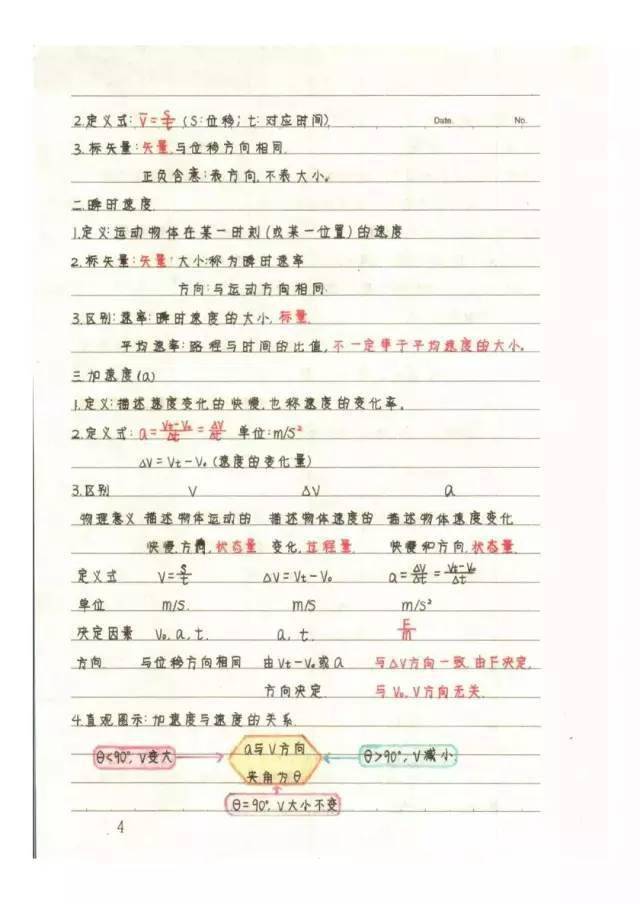 2.定义式: v̄=s/t (S:位移; t:对应时间)
Date. No.
3.标矢量:矢量,与位移方向相同.
正负含意:表方向,不表大小。
二.瞬时速度.
1.定义:运动物体在某一时刻(或某一位置)的速度
2.标矢量:矢量 大小:称为瞬时速率
方向:与运动方向相同.
3.区别:速率:瞬时速度的大小,标量.
平均速率:路程与时间的比值,不一定等于平均速度的大小。
三.加速度(a)
1.定义:描述速度变化的快慢,也称速度的变化率。
2.定义式: a=(Vt-V₀)/Δt=ΔV/Δt 单位:m/S²
ΔV=Vt-V₀(速度的变化量)
3.区别 V ΔV a
物理意义 描述物体运动的 描述物体速度的 描述物体速度变化
快慢,方向,状态量 变化,过程量. 快慢和方向,状态量.
定义式 V=s/t ΔV=Vt-V₀ a=ΔV/Δt=(Vt-V₀)/Δt
单位 m/s. m/s m/s²
决定因素 V₀.a,t. a,t. F/m
方向 与位移方向相同 由Vt-V₀或a 与ΔV方向一致.由F决定,
方向决定. 与V₀,V方向无关.
4.直观图示:加速度与速度的关系.
θ<90°,V变大 a与V方向 θ>90°,V减小.
夹角为θ
θ=90°,V大小不变
4